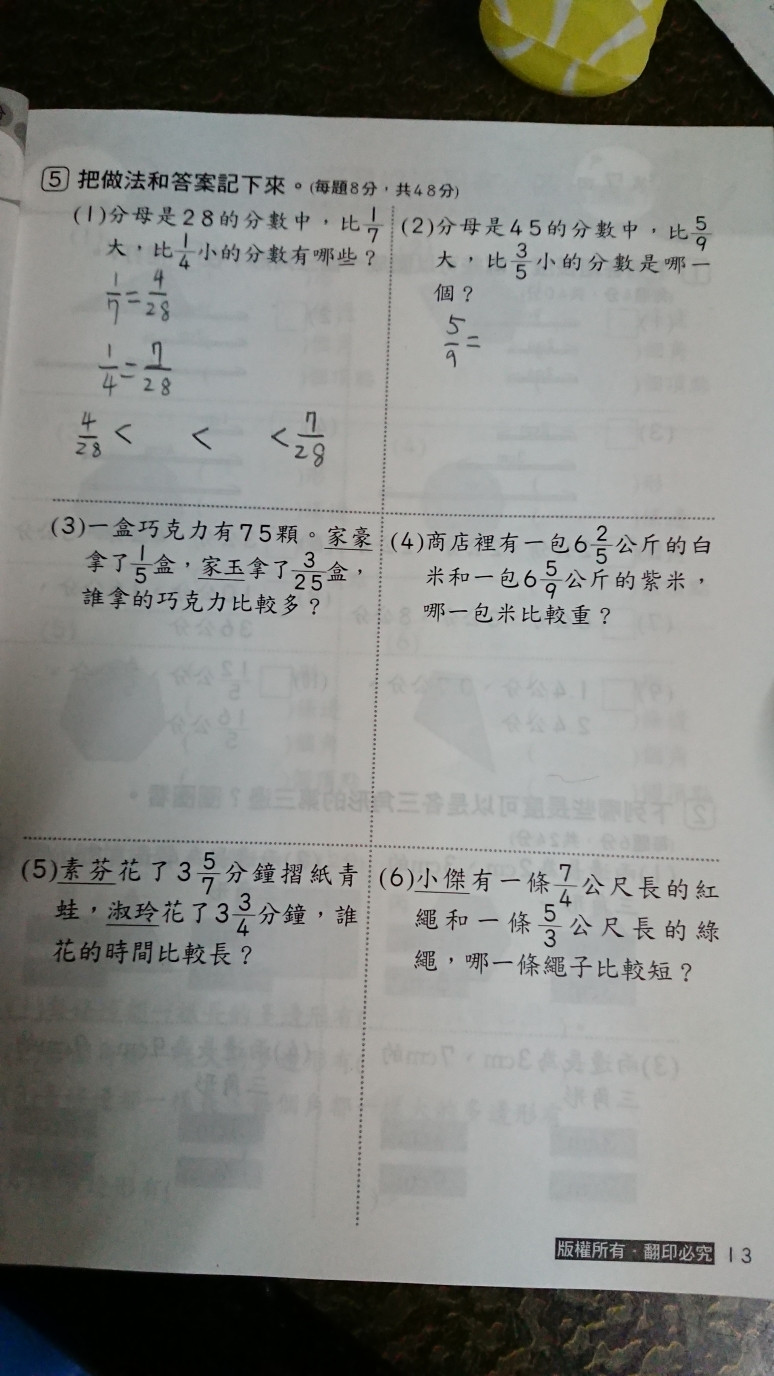 5 把做法和答案記下來。(每題8分，共48分)
(1)分母是28的分數中，比1/7
大，比1/4小的分數有哪些？
1/7=4/28
1/4=7/28
4/28< < <7/28
(2)分母是45的分數中，比5/9
大，比3/5小的分數是哪一
個？
5/9=
(3)一盒巧克力有75顆。家豪
拿了1/5盒，家玉拿了3/25盒，
誰拿的巧克力比較多？
(4)商店裡有一包6 2/5公斤的白
米和一包6 5/9公斤的紫米，
哪一包米比較重？
(5)素芬花了3 5/7分鐘摺紙青
蛙，淑玲花了3 3/4分鐘，誰
花的時間比較長？
(6)小傑有一條7/4公尺長的紅
繩和一條5/3公尺長的綠
繩，哪一條繩子比較短？
版權所有·翻印必究 13